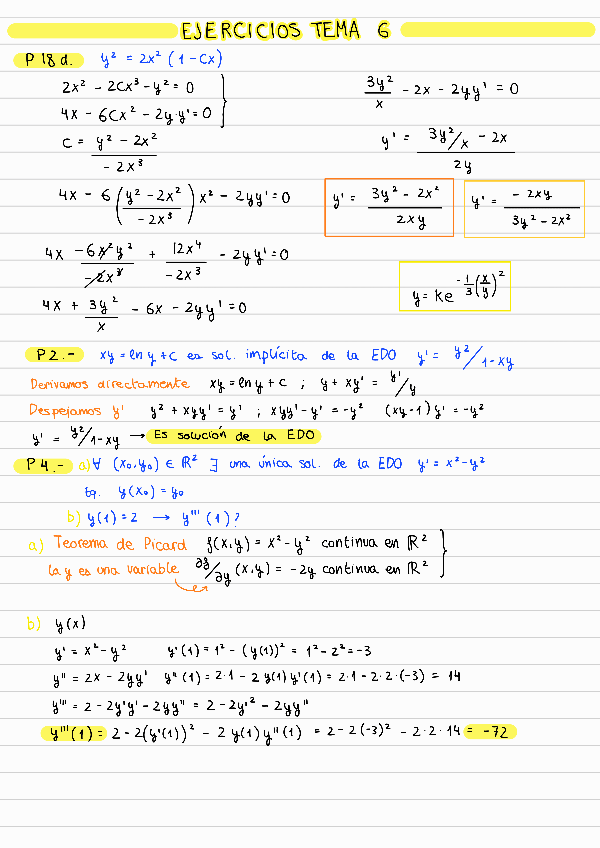 EJERCICIOS TEMA 6
P 18 d. y² = 2x² (1 - Cx)
2x² - 2Cx³ - y² = 0
4x - 6Cx² - 2y·y' = 0
C = (y² - 2x²)/(-2x³)
4x - 6 ((y² - 2x²)/(-2x³)) x² - 2yy' = 0
4x (-6x²y²)/(-2x³) + (12x⁴)/(-2x³) - 2yy' = 0
4x + 3y²/x - 6x - 2yy' = 0
3y²/x - 2x - 2yy' = 0
y' = (3y²/x - 2x)/(2y)
y' = (3y² - 2x²)/(2xy)
y' = (-2xy)/(3y² - 2x²)
y = Ke^(-1/3 (x/y)²)
P2.- xy = ln y + c es sol. implícita de la EDO y' = y²/1-xy
Derivamos directamente xy = ln y + c ; y + xy' = y'/y
Despejamos y' y² + xyy' = y' ; xyy' - y' = -y² (xy-1)y' = -y²
y' = y²/1-xy → Es solución de la EDO
P4.- a) ∀ (x₀,y₀) ∈ ℝ² ∃ una única sol. de la EDO y' = x² - y²
tq. y(x₀) = y₀
b) y(1) = 2 → y''' (1)?
a) Teorema de Picard f(x,y) = x² - y² continua en ℝ²
la y es una variable ∂f/∂y (x,y) = -2y continua en ℝ²
b) y(x)
y' = x² - y² y'(1) = 1² - (y(1))² = 1² - 2² = -3
y'' = 2x - 2yy' y''(1) = 2·1 - 2y(1)y'(1) = 2·1 - 2·2·(-3) = 14
y''' = 2 - 2y'y' - 2yy'' = 2 - 2y'² - 2yy''
y'''(1) = 2 - 2(y'(1))² - 2 y(1) y''(1) = 2 - 2(-3)² - 2·2·14 = -72